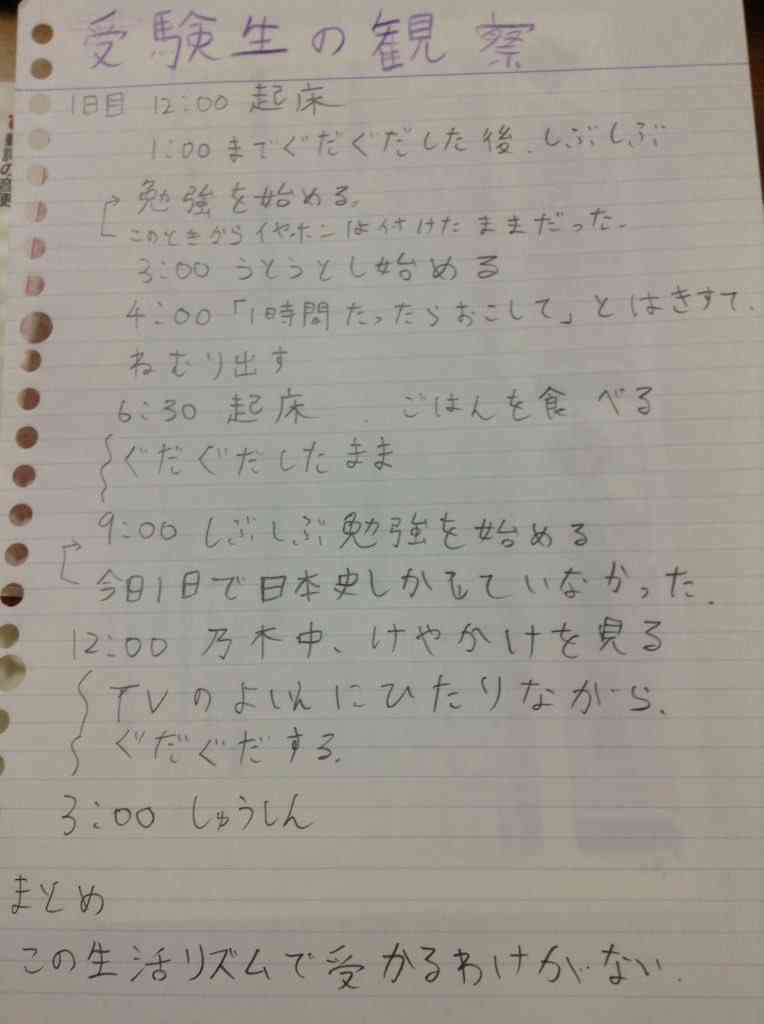 受験生の観察
1日目 12:00 起床
1:00 までぐだぐだした後、しぶしぶ
勉強を始める。
このときからイヤホンは付けたままだった。
3:00 うとうとし始める
4:00 「1時間たったらおこして」とはきすて、
ねむり出す
6:30 起床 、ごはんを食べる
ぐだぐだしたまま
9:00 しぶしぶ勉強を始める
今日1日で日本史しかしていなかった。
12:00 乃木中、けやかけを見る
TVのよいんにひたりながら、
ぐだぐだする。
3:00 しゅうしん
まとめ
この生活リズムで受かるわけがない。